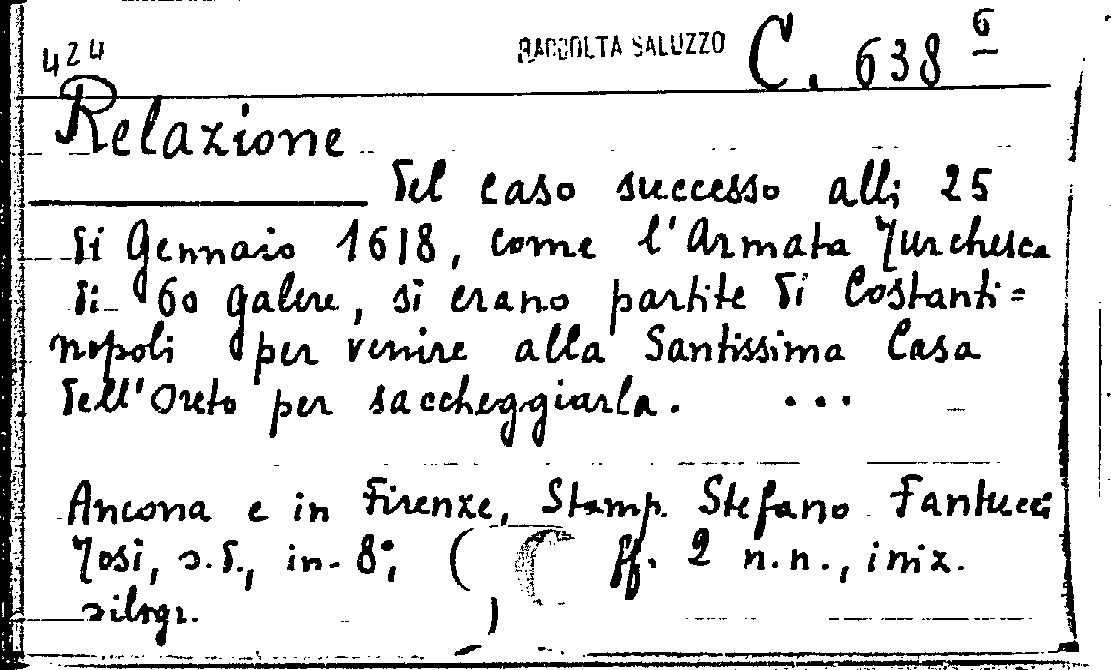 424
RACCOLTA SALUZZO C. 638 6
Relazione
del caso successo alli 25
di Gennaio 1618, come l'Armata Turchesca
di 60 galere, si erano partite di Costanti=
nopoli per venire alla Santissima Casa
dell'Oreto per saccheggiarla. ...
Ancona e in Firenze, Stamp. Stefano Fantucci
Tosi, s.d., in-8°, ( ff. 2 n.n., iniz.
silogr. )